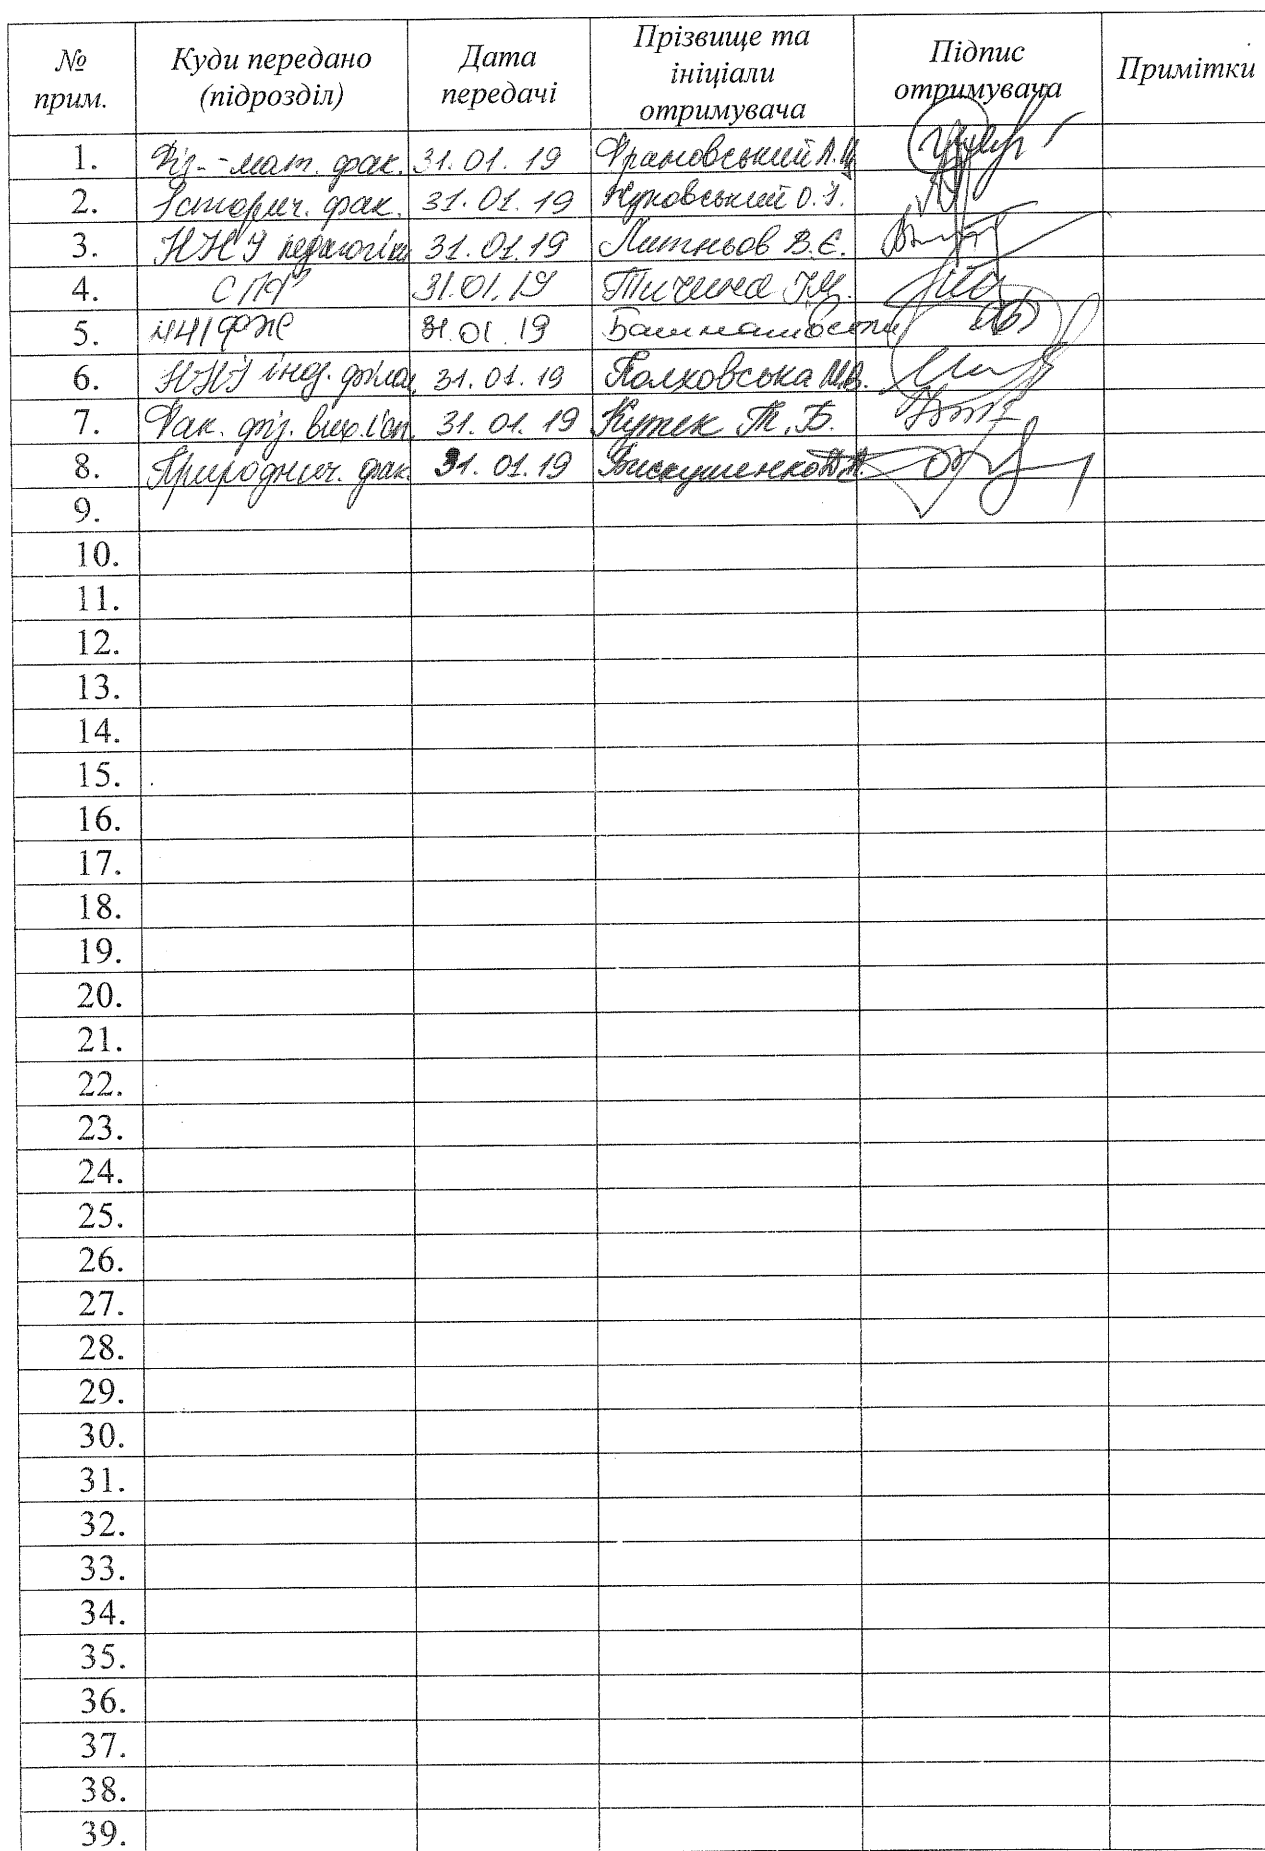 № прим. Куди передано (підрозділ) Дата передачі Прізвище та ініціали отримувача Підпис отримувача Примітки
1. Фіз.-мат. фак. 31.01.19 Франовський А.Ц.
2. Історич. фак. 31.01.19 Жуковський О.І.
3. ННІ педагогіки 31.01.19 Литньов В.Є.
4. СПФ 31.01.19 Тичина І.М.
5. ННІФЖ 31.01.19
6. ННІ іноз. філол. 31.01.19 Полховська М.В.
7. Фак. фіз. вих. і сп. 31.01.19 Кутек Т.Б.
8. Природнич. фак. 31.01.19 Вискушенко Д.А.
9.
10.
11.
12.
13.
14.
15.
16.
17.
18.
19.
20.
21.
22.
23.
24.
25.
26.
27.
28.
29.
30.
31.
32.
33.
34.
35.
36.
37.
38.
39.